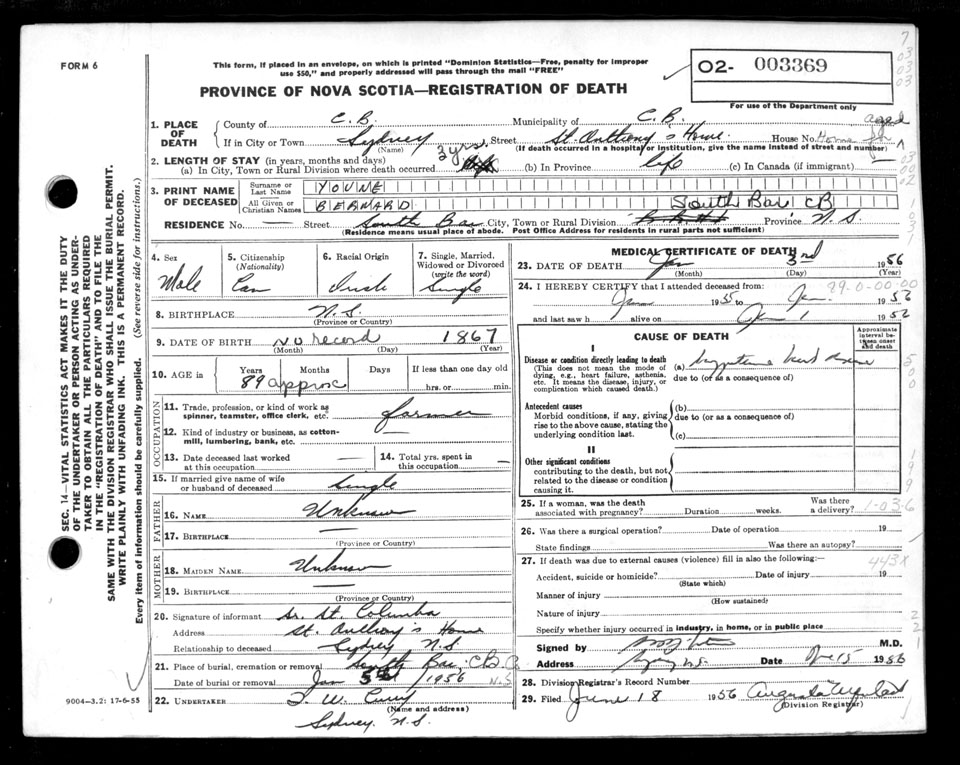 FORM 6
This form, if placed in an envelope, on which is printed "Dominion Statistics—Free, penalty for improper
use $50," and properly addressed will pass through the mail "FREE"
O2- 003369
For use of the Department only
PROVINCE OF NOVA SCOTIA—REGISTRATION OF DEATH
1. PLACE OF DEATH
County of C.B. Municipality of C.B.
If in City or Town Sydney Street St. Anthony's Home House No. aged Home
(Name) (If death occurred in a hospital or institution, give the name instead of street and number)
2. LENGTH OF STAY (in years, months and days)
(a) In City, Town or Rural Division where death occurred 3 yrs. (b) In Province life (c) In Canada (if immigrant) —
3. PRINT NAME OF DECEASED
Surname or Last Name YOUNE
All Given or Christian Names BERNARD
South Bar CB
RESIDENCE No. — Street South Bar City, Town or Rural Division Province N.S.
(Residence means usual place of abode. Post Office Address for residents in rural parts not sufficient)
4. Sex Male
5. Citizenship (Nationality) Can
6. Racial Origin Irish
7. Single, Married, Widowed or Divorced (write the word) Single
8. BIRTHPLACE N.S.
(Province or Country)
9. DATE OF BIRTH No record 1867
(Month) (Day) (Year)
10. AGE in Years Months Days If less than one day old
89 approx hrs. or min.
OCCUPATION
11. Trade, profession, or kind of work as spinner, teamster, office clerk, etc. farmer
12. Kind of industry or business, as cotton-mill, lumbering, bank, etc. —
13. Date deceased last worked at this occupation —
14. Total yrs. spent in this occupation —
15. If married give name of wife or husband of deceased Single
FATHER
16. NAME Unknown
17. BIRTHPLACE —
(Province or Country)
MOTHER
18. MAIDEN NAME Unknown
19. BIRTHPLACE —
(Province or Country)
20. Signature of informant Sr. St. Columba
Address St. Anthony's Home
Relationship to deceased Sydney N.S
21. Place of burial, cremation or removal South Bar C.B. N.S
Date of burial or removal Jan 5th 1956
22. UNDERTAKER T. W. Curry
(Name and address)
Sydney, N.S.
9004—3.2: 17-6-55
MEDICAL CERTIFICATE OF DEATH
23. DATE OF DEATH Jan 3rd 1956
(Month) (Day) (Year)
24. I HEREBY CERTIFY that I attended deceased from: 29.0-00.00
Jan 1955 to Jan 1952
and last saw h alive on Jan 1 1952
CAUSE OF DEATH
Approximate interval between onset and death
I
Disease or condition directly leading to death
(This does not mean the mode of dying, e.g., heart failure, asthenia, etc. It means the disease, injury, or complication which caused death.)
(a) heart
due to (or as a consequence of)
Antecedent causes
Morbid conditions, if any, giving rise to the above cause, stating the underlying condition last.
(b)
due to (or as a consequence of)
(c)
II
Other significant conditions
contributing to the death, but not related to the disease or condition causing it.
25. If a woman, was the death associated with pregnancy? Duration weeks. Was there a delivery? 1-036
26. Was there a surgical operation? Date of operation 19
State findings Was there an autopsy?
27. If death was due to external causes (violence) fill in also the following:— 443X
Accident, suicide or homicide? Date of injury 19
(State which)
Manner of injury
(How sustained)
Nature of injury
Specify whether injury occurred in industry, in home, or in public place
Signed by M.D.
Address Date 15 1956
28. Division Registrar's Record Number
29. Filed June 18 1956
(Division Registrar)
SEC. 14—VITAL STATISTICS ACT MAKES IT THE DUTY
OF THE UNDERTAKER OR PERSON ACTING AS UNDER-
TAKER TO OBTAIN ALL THE PARTICULARS REQUIRED
IN THE "REGISTRATION OF DEATH" AND TO FILE THE
SAME WITH THE DIVISION REGISTRAR WHO SHALL ISSUE THE BURIAL PERMIT.
WRITE PLAINLY WITH UNFADING INK. THIS IS A PERMANENT RECORD.
Every item of information should be carefully supplied. (See reverse side for instructions.)